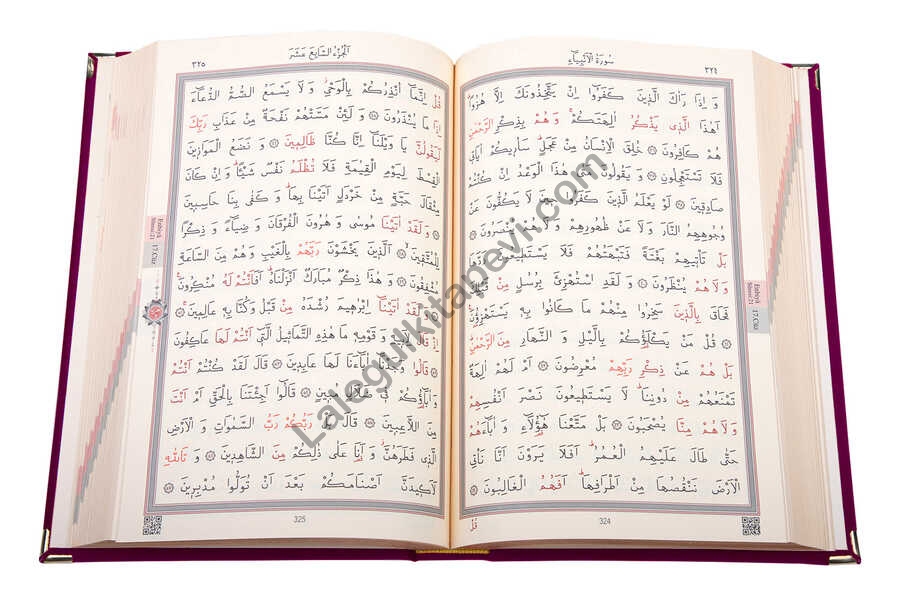 ٣٢٤ سُورَةُ الْاَنْبِيَاءِ
وَاِذَا رَاٰكَ الَّذٖينَ كَفَرُٓوا اِنْ يَتَّخِذُونَكَ اِلَّا هُزُوًا
اَهٰذَا الَّذٖي يَذْكُرُ اٰلِهَتَكُمْ وَهُمْ بِذِكْرِ الرَّحْمٰنِ
هُمْ كَافِرُونَ ﴿٣٦﴾ خُلِقَ الْاِنْسَانُ مِنْ عَجَلٍ سَاُرٖيكُمْ اٰيَاتٖي
فَلَا تَسْتَعْجِلُونِ ﴿٣٧﴾ وَيَقُولُونَ مَتٰى هٰذَا الْوَعْدُ اِنْ كُنْتُمْ
صَادِقٖينَ ﴿٣٨﴾ لَوْ يَعْلَمُ الَّذٖينَ كَفَرُوا حٖينَ لَا يَكُفُّونَ عَنْ
وُجُوهِهِمُ النَّارَ وَلَا عَنْ ظُهُورِهِمْ وَلَا هُمْ يُنْصَرُونَ ﴿٣٩﴾
بَلْ تَأْتٖيهِمْ بَغْتَةً فَتَبْهَتُهُمْ فَلَا يَسْتَطٖيعُونَ رَدَّهَا
وَلَا هُمْ يُنْظَرُونَ ﴿٤٠﴾ وَلَقَدِ اسْتُهْزِئَ بِرُسُلٍ مِنْ قَبْلِكَ
فَحَاقَ بِالَّذٖينَ سَخِرُوا مِنْهُمْ مَا كَانُوا بِهٖ يَسْتَهْزِؤُنَ
﴿٤١﴾ قُلْ مَنْ يَكْلَؤُكُمْ بِالَّيْلِ وَالنَّهَارِ مِنَ الرَّحْمٰنِ
بَلْ هُمْ عَنْ ذِكْرِ رَبِّهِمْ مُعْرِضُونَ ﴿٤٢﴾ اَمْ لَهُمْ اٰلِهَةٌ
تَمْنَعُهُمْ مِنْ دُونِنَا لَا يَسْتَطٖيعُونَ نَصْرَ اَنْفُسِهِمْ
وَلَا هُمْ مِنَّا يُصْحَبُونَ ﴿٤٣﴾ بَلْ مَتَّعْنَا هٰٓؤُلَاءِ وَاٰبَاءَهُمْ
حَتّٰى طَالَ عَلَيْهِمُ الْعُمُرُ اَفَلَا يَرَوْنَ اَنَّا نَأْتِي
الْاَرْضَ نَنْقُصُهَا مِنْ اَطْرَافِهَا اَفَهُمُ الْغَالِبُونَ ﴿٤٤﴾
324
قُلْ
Enbiyâ Sûresi:21
17.Cüz
اَلْجُزْءُ السَّابِعَ عَشَرَ ٣٢٥
قُلْ اِنَّمَا اُنْذِرُكُمْ بِالْوَحْيِ وَلَا يَسْمَعُ الصُّمُّ الدُّعَاءَ
اِذَا مَا يُنْذَرُونَ ﴿٤٥﴾ وَلَئِنْ مَسَّتْهُمْ نَفْحَةٌ مِنْ عَذَابِ رَبِّكَ
لَيَقُولُنَّ يَا وَيْلَنَا اِنَّا كُنَّا ظَالِمٖينَ ﴿٤٦﴾ وَنَضَعُ الْمَوَازٖينَ
الْقِسْطَ لِيَوْمِ الْقِيٰمَةِ فَلَا تُظْلَمُ نَفْسٌ شَيْـًٔا وَاِنْ كَانَ
مِثْقَالَ حَبَّةٍ مِنْ خَرْدَلٍ اَتَيْنَا بِهَا وَكَفٰى بِنَا حَاسِبٖينَ
﴿٤٧﴾ وَلَقَدْ اٰتَيْنَا مُوسٰى وَهٰرُونَ الْفُرْقَانَ وَضِيَاءً وَذِكْرًا
لِلْمُتَّقٖينَ ﴿٤٨﴾ اَلَّذٖينَ يَخْشَوْنَ رَبَّهُمْ بِالْغَيْبِ وَهُمْ مِنَ السَّاعَةِ
مُشْفِقُونَ ﴿٤٩﴾ وَهٰذَا ذِكْرٌ مُبَارَكٌ اَنْزَلْنَاهُ اَفَاَنْتُمْ لَهُ مُنْكِرُونَ
﴿٥٠﴾ وَلَقَدْ اٰتَيْنَا اِبْرٰهٖيمَ رُشْدَهُ مِنْ قَبْلُ وَكُنَّا بِهٖ عَالِمٖينَ ﴿٥١﴾
اِذْ قَالَ لِاَبٖيهِ وَقَوْمِهٖ مَا هٰذِهِ التَّمَاثٖيلُ الَّتٖي اَنْتُمْ لَهَا عَاكِفُونَ
﴿٥٢﴾ قَالُوا وَجَدْنَا اٰبَاءَنَا لَهَا عَابِدٖينَ ﴿٥٣﴾ قَالَ لَقَدْ كُنْتُمْ اَنْتُمْ
وَاٰبَاؤُكُمْ فٖي ضَلَالٍ مُبٖينٍ ﴿٥٤﴾ قَالُوا اَجِئْتَنَا بِالْحَقِّ اَمْ اَنْتَ
مِنَ اللَّاعِبٖينَ ﴿٥٥﴾ قَالَ بَلْ رَبُّكُمْ رَبُّ السَّمٰوَاتِ وَالْاَرْضِ
الَّذٖي فَطَرَهُنَّ وَاَنَا عَلٰى ذٰلِكُمْ مِنَ الشَّاهِدٖينَ ﴿٥٦﴾ وَتَاللّٰهِ
لَاَكٖيدَنَّ اَصْنَامَكُمْ بَعْدَ اَنْ تُوَلُّوا مُدْبِرٖينَ ﴿٥٧﴾
325
Enbiyâ Sûresi:21
17.Cüz
Lalegulkitapevi.com